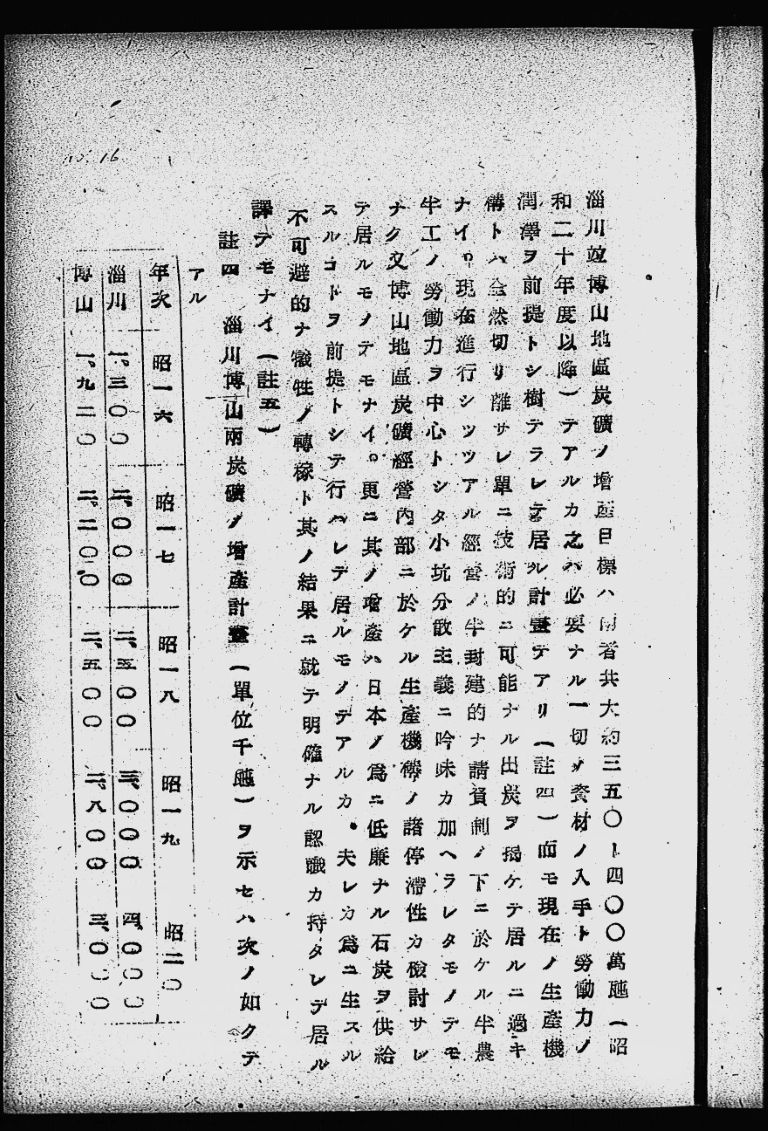 No. 16
淄川竝博山地區炭礦ノ增產目標ハ兩者共大約三五〇―四〇〇萬瓲(昭
和二十年度以降)テアルカ之ハ必要ナル一切ノ資材ノ入手ト勞働力ノ
潤澤ヲ前提トシ樹テラレテ居ル計畫テアリ(註四)而モ現在ノ生產機
構トハ全然切リ離サレ單ニ技術的ニ可能ナル出炭ヲ揭ケテ居ルニ過キ
ナイ。現在進行シツツアル經營ノ半封建的ナ請負制ノ下ニ於ケル半農
半工ノ勞働力ヲ中心トシタ小坑分散主義ニ吟味カ加ヘラレタモノテモ
ナク又博山地區炭礦經營內部ニ於ケル生產機構ノ諸停滯性カ檢討サレ
テ居ルモノテモナイ。更ニ其ノ增產ハ日本ノ爲ニ低廉ナル石炭ヲ供給
スルコトヲ前提トシテ行ハレテ居ルモノデアルカ・夫レカ爲ニ生スル
不可避的ナ犧牲ノ轉稼ト其ノ結果ニ就テ明確ナル認識カ持タレテ居ル
譯テモナイ(註五)
註四 淄川博山兩炭礦ノ增產計畫(單位千瓲)ヲ示セハ次ノ如クテ
アル
年次 昭一六 昭一七 昭一八 昭一九 昭二〇
淄川 一、三〇〇 二、〇〇〇 二、五〇〇 三、〇〇〇 四、〇〇〇
博山 一、九二〇 二、二〇〇 二、五〇〇 二、八〇〇 三、〇〇〇